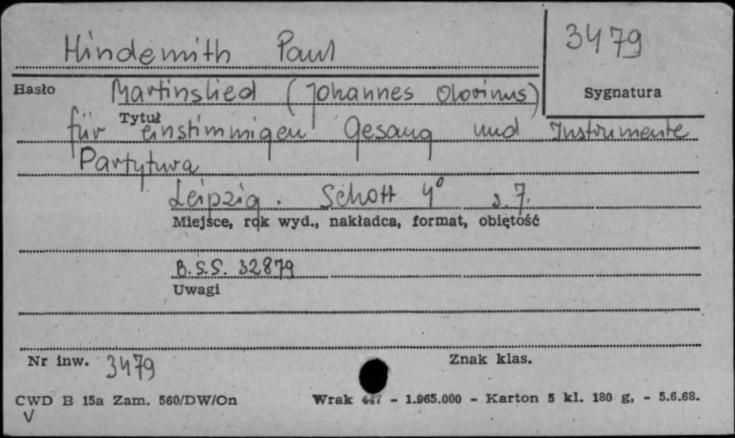 Hindemith Paul
3479
Hasło
Martinslied (Johannes Olorinus)
Sygnatura
Tytuł
für einstimmigen Gesang und Instrumente
Partytura
Leipzig. Schott 4° s. 7.
Miejsce, rok wyd., nakładca, format, obiętość
B.S.S. 32879
Uwagi
Nr inw. 3479
Znak klas.
CWD B 15a Zam. 560/DW/On
Wrak 447 - 1.965.000 - Karton 5 kl. 180 g, - 5.6.68.
V